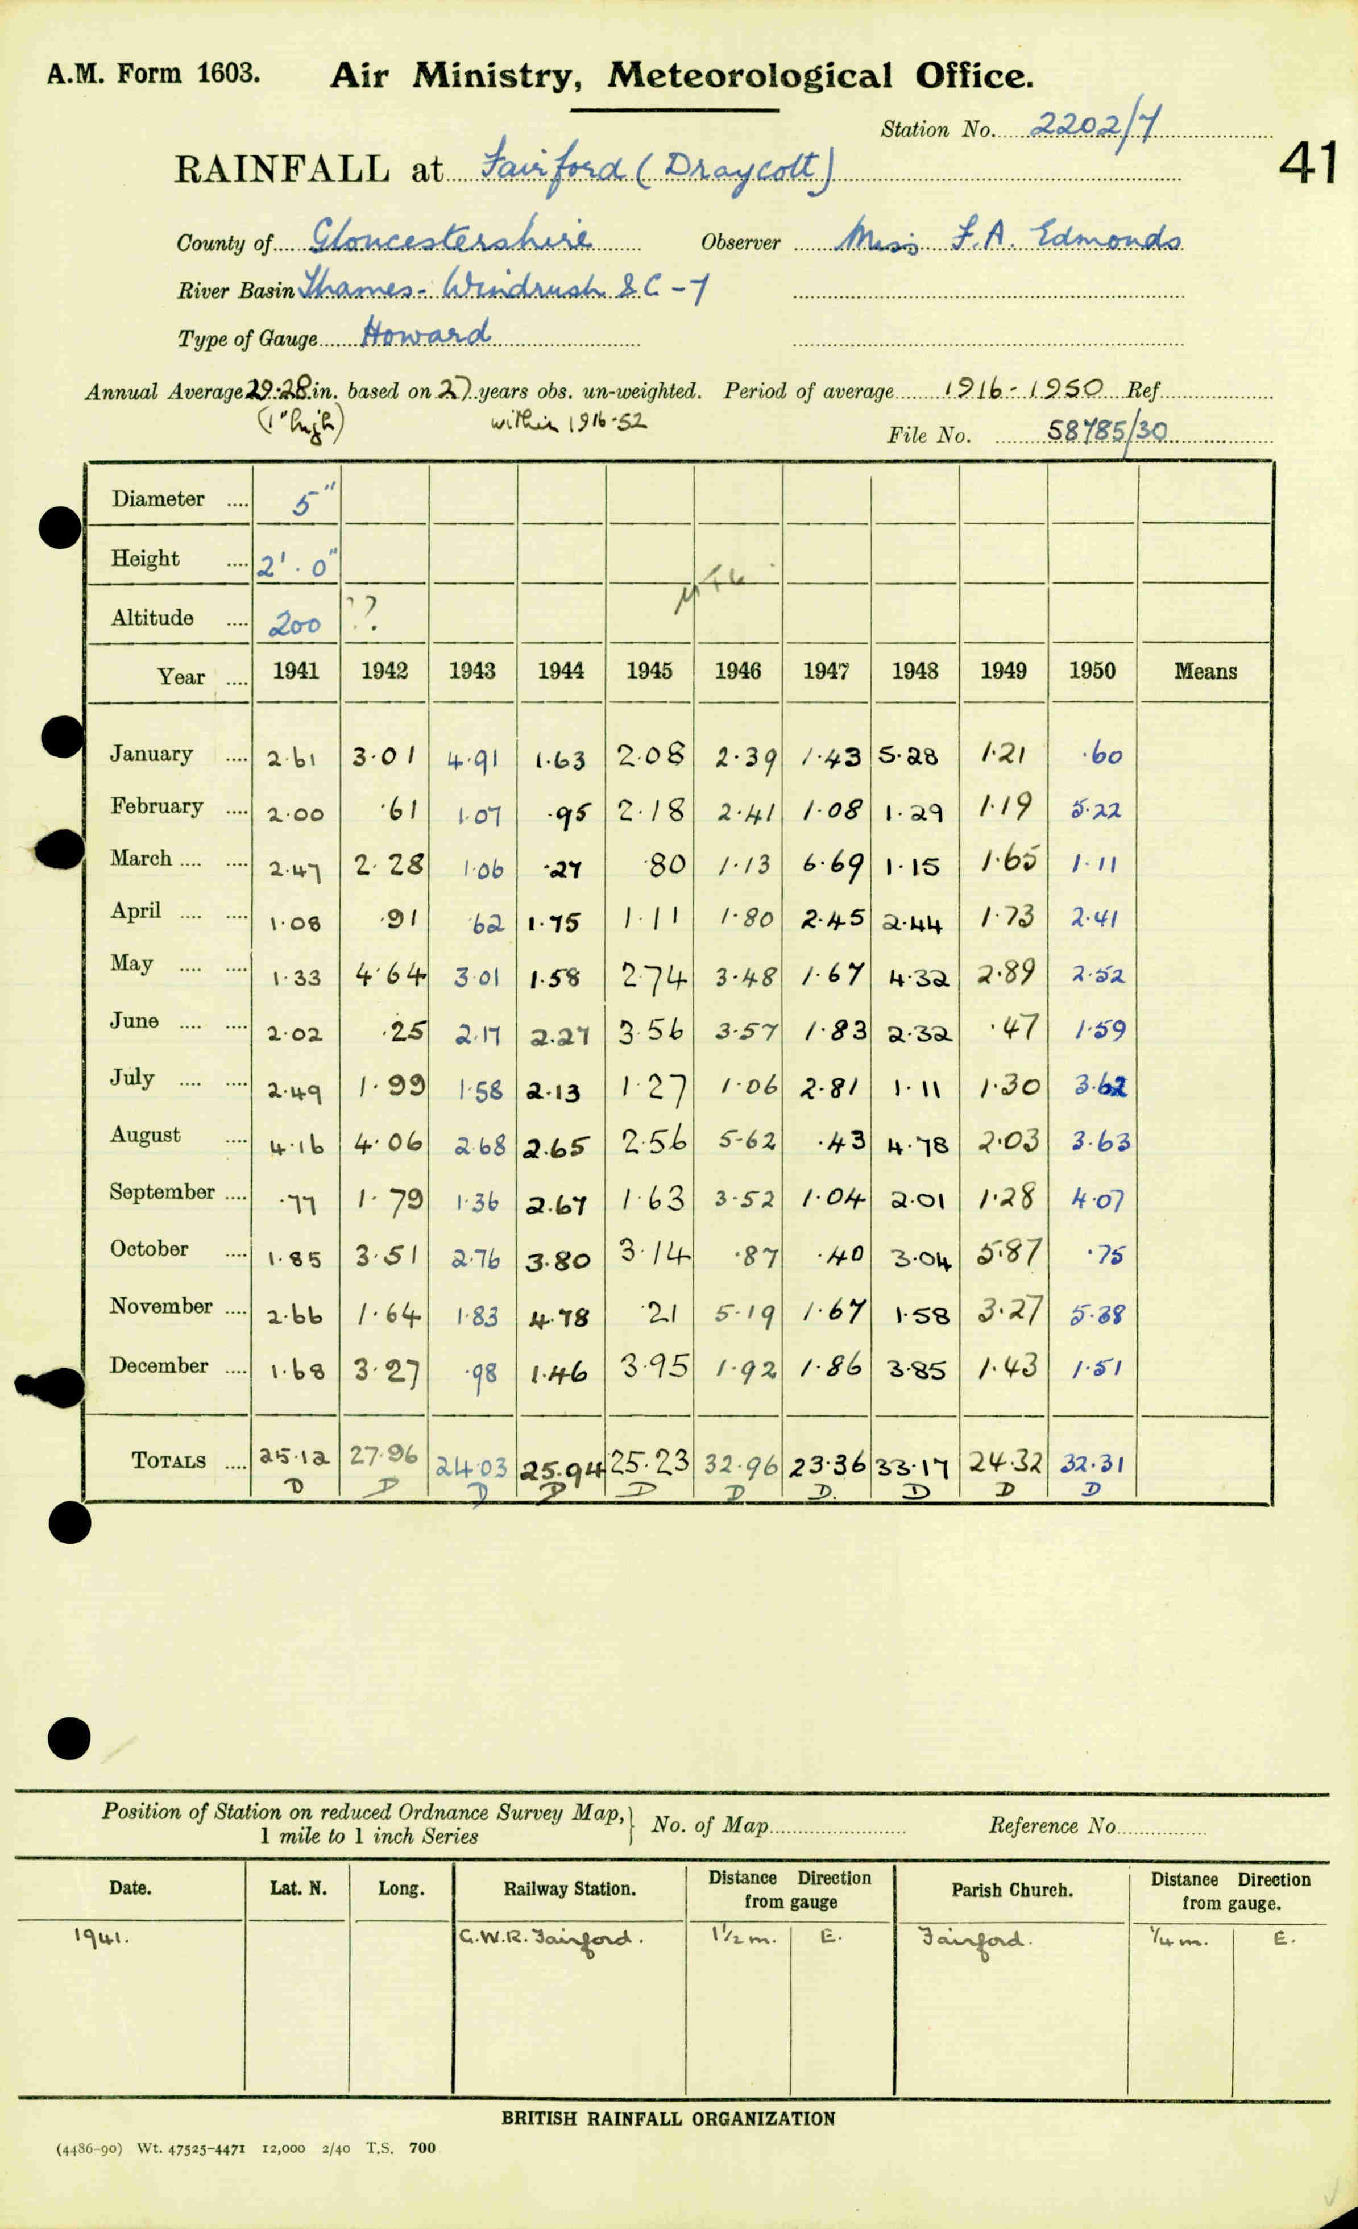 A.M. Form 1603. Air Ministry, Meteorological Office.
Station No. 2202/7
41
RAINFALL at Fairford (Draycott)
County of Gloucestershire Observer Miss F.A. Edmonds
River Basin Thames - Windrush & C - 7
Type of Gauge Howard
Annual Average 29.28 in. based on 27 years obs. un-weighted. Period of average 1916-1950 Ref.
(1" high) within 1916-52
File No. 58785/30
Diameter .... 5"
Height .... 2'.0"
Altitude .... 200 ??
Year .... 1941 1942 1943 1944 1945 1946 1947 1948 1949 1950 Means
January .... 2.61 3.01 4.91 1.63 2.08 2.39 1.43 5.28 1.21 .60
February .... 2.00 .61 1.07 .95 2.18 2.41 1.08 1.29 1.19 5.22
March .... .... 2.47 2.28 1.06 .27 .80 1.13 6.69 1.15 1.65 1.11
April .... .... 1.08 .91 .62 1.75 1.11 1.80 2.45 2.44 1.73 2.41
May .... .... 1.33 4.64 3.01 1.58 2.74 3.48 1.67 4.32 2.89 2.52
June .... .... 2.02 .25 2.17 2.27 3.56 3.57 1.83 2.32 .47 1.59
July .... .... 2.49 1.99 1.58 2.13 1.27 1.06 2.81 1.11 1.30 3.62
August .... 4.16 4.06 2.68 2.65 2.56 5.62 .43 4.78 2.03 3.63
September .... .77 1.79 1.36 2.67 1.63 3.52 1.04 2.01 1.28 4.07
October .... 1.85 3.51 2.76 3.80 3.14 .87 .40 3.04 5.87 .75
November .... 2.66 1.64 1.83 4.78 .21 5.19 1.67 1.58 3.27 5.38
December .... 1.68 3.27 .98 1.46 3.95 1.92 1.86 3.85 1.43 1.51
TOTALS .... 25.12 27.96 24.03 25.94 25.23 32.96 23.36 33.17 24.32 32.31
D D D D D D D. D D D
Position of Station on reduced Ordnance Survey Map,} No. of Map Reference No.
1 mile to 1 inch Series
Date. Lat. N. Long. Railway Station. Distance Direction from gauge Parish Church. Distance Direction from gauge.
1941. G.W.R. Fairford. 1½ m. E. Fairford. ¼ m. E.
BRITISH RAINFALL ORGANIZATION
(4486-90) Wt. 47525-4471 12,000 2/40 T.S. 700